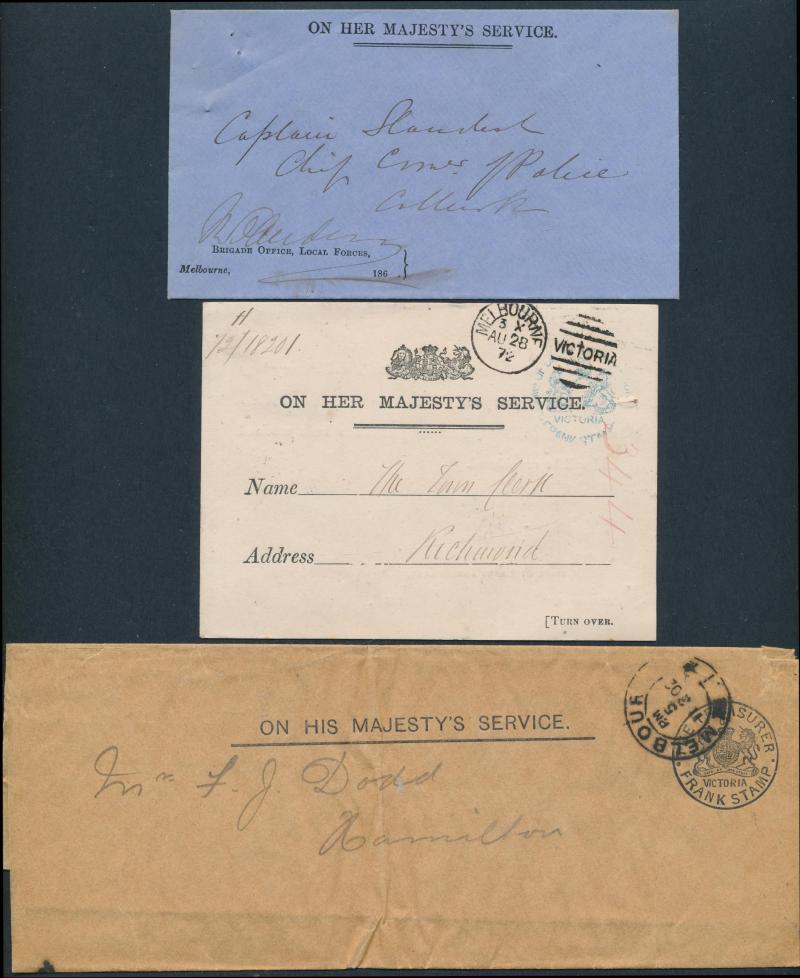 ON HER MAJESTY'S SERVICE.
Captain Standish
Chief Commr of Police
BRIGADE OFFICE, LOCAL FORCES,
Melbourne, 186
H
72/18201
MELBOURNE
3 X
AU 28
72
VICTORIA
VICTORIA
FRANK STAMP
ON HER MAJESTY'S SERVICE.
344
Name The Town Clerk
Address Richmond
[TURN OVER.
ON HIS MAJESTY'S SERVICE.
MELBOUR
5 PM
VICTORIA
FRANK STAMP
Mr F. J. Dodd
Hamilton